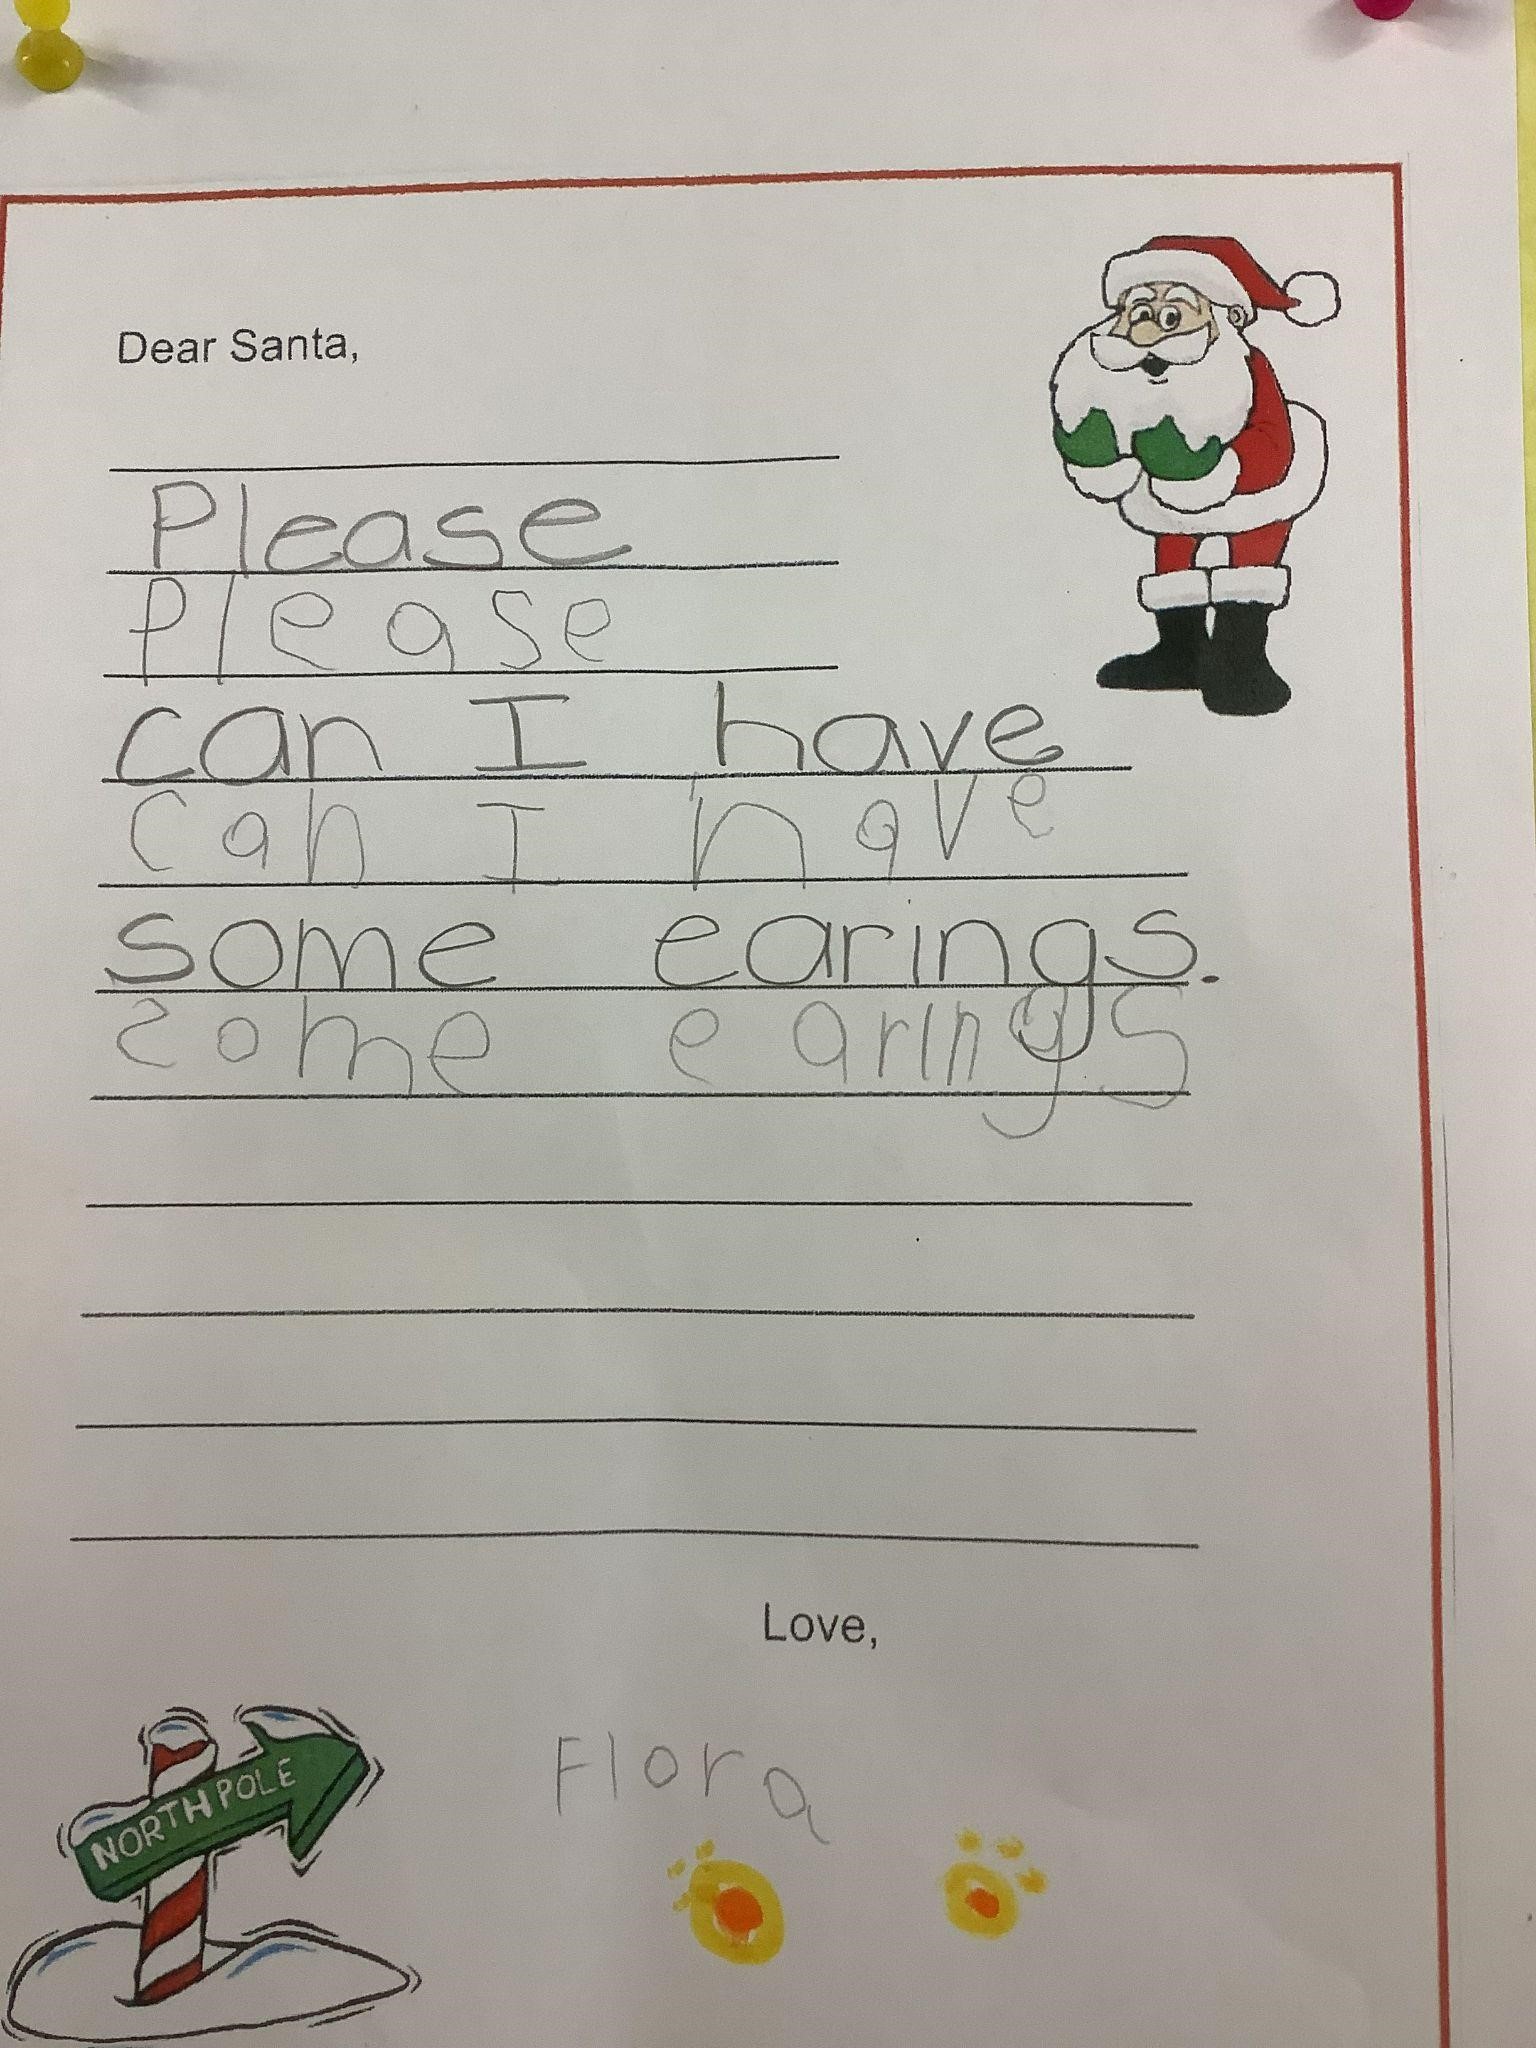 Dear Santa,
Please
Please
can I have
can I have
some earings.
some earings
Love,
Flora
NORTH POLE